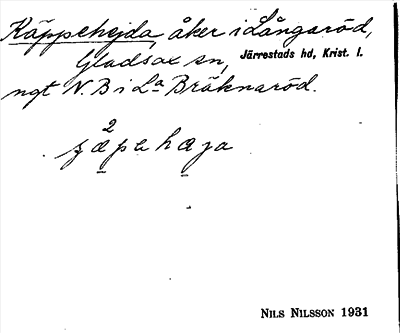 Käppehejda, åker i Långaröd,
Gladsax sn, Järrestads hd, Krist. l.
ngt N. B i L:a Bräknaröd.
2
NILS NILSSON 1931